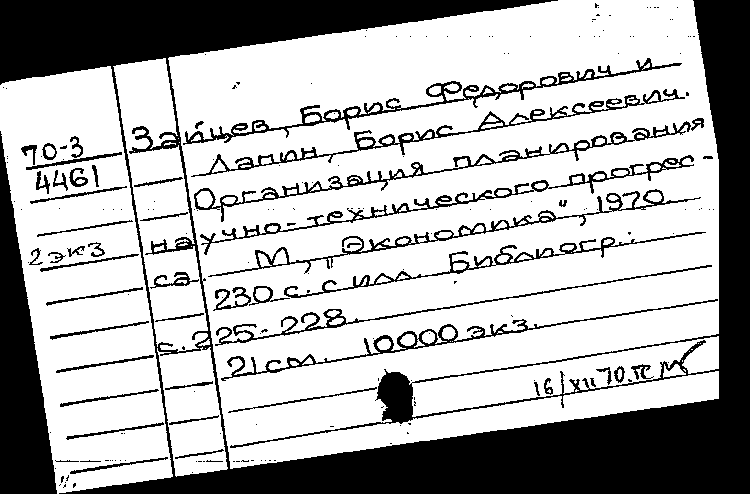 70-3
4461
2 экз
Зайцев, Борис Федорович и
Лапин, Борис Алексеевич.
Организация планирования
научно-технического прогрес-
са. М., „Экономика“, 1970
230 с. с илл. Библиогр.:
с. 225-228.
21 см. 10000 экз.
16/XII 70.